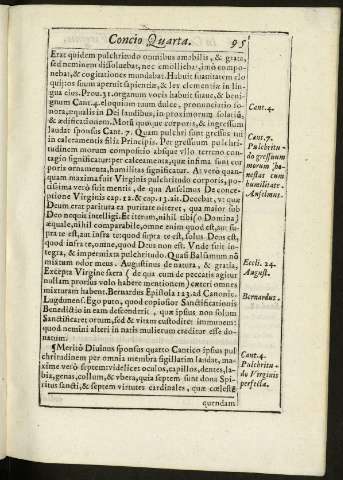 Concio Quarta. 95
Erat quidem pulchritudo omnibus amabilis, & grata,
sed neminem dissoluebat, nec emolliebat, imò compo-
nebat, & cogitationes mundabat. Habuit suauitatem elo
quij: os suum aperuit sapientiæ, & lex clementiæ in lin
gua eius. Prou. 31. organum vocis habuit suaue, & beni
gnum Cant. 4. eloquium tuum dulce, pronunciatio so-
nora, æqualis in Dei laudibus, in proximorum solatiũ,
& ædificationem. Motu quoque corporis, & ingressum
laudat sponsus Cant. 7. Quam pulchri sunt gressus tui
in calceamentis filia Principis. Per gressum pulchri-
tudinem morum composito absque vllo terreno con-
tagio significatur: per calceamenta, quæ infima sunt cor
poris ornamenta, humilitas significatur. At verò quan-
quam maxima fuit Virginis pulchritudo corporis, po-
tissima verò fuit mentis, de qua Anselmus De conce-
ptione Virginis cap. 12. & cap. 13. ait. Decebat, vt quæ
Deum erat paritura ea puritate niteret, qua maior sub
Deo nequit intelligi. Et iterum, nihil tibi (o Domina)
æquale, nihil comparabile, omne enim quod est, aut su-
pra te est, aut infra te: quod supra te est, solus Deus est,
quod infra te, omne, quod Deus non est. Vnde fuit in-
tegra, & impermixta pulchritudo. Quasi Balsamum nõ
mixtum odor meus. Augustinus de natura, & gratia,
Excepta Virgine sacra (de qua cum de peccatis agitur
nullam prorsus volo habere mentionem) cæteri omnes
mixturam habent. Bernardus Epistola 123. ad Canonic.
Lugdunens. Ego puto, quod copiosior Sanctificationis
Benedictio in eam descenderit, quæ ipsius non solum
Sanctificaret ortum, sed & vitam custodiret immunem:
quod nemini alteri in natis mulierum creditur esse do-
natum.
¶ Meritò Diuinus sponsus quarto Cantico ipsius pul
chritudinem per omnia membra sigillatim laudat, ma-
ximè verò septem: videlicet oculos, capillos, dentes, la-
bia, genas, collum, & vbera, quia septem sunt dona Spi-
ritus sancti, & septem virtutes cardinales, quæ cœleste
quendam
Cant. 4.
Cant. 7.
Pulchritu-
do gressuum
morum ho-
nestas cum
humilitate.
Anselmus.
Eccli. 24.
August.
Bernardus.
Cant. 4.
Pulchritu-
do Virginis
perfecta.